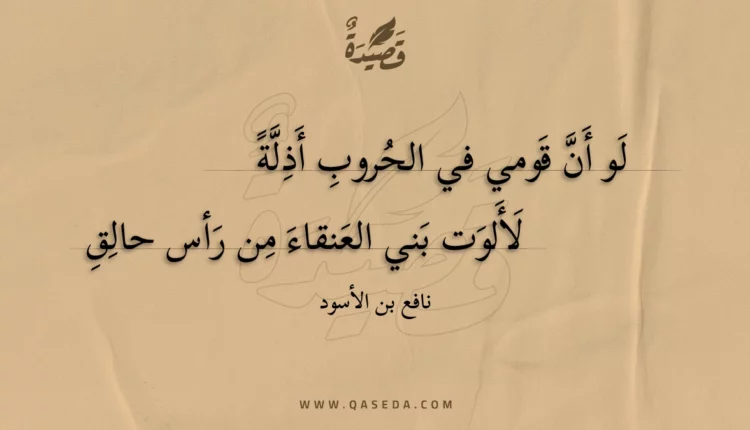 قَصِيْدَةٌ
لَو أَنَّ قَومي في الحُروبِ أَذِلَّةً
لَأَلوَت بَني العَنقاءَ مِن رَأس حالِقِ
نافع بن الأسود
WWW.QASEDA.COM